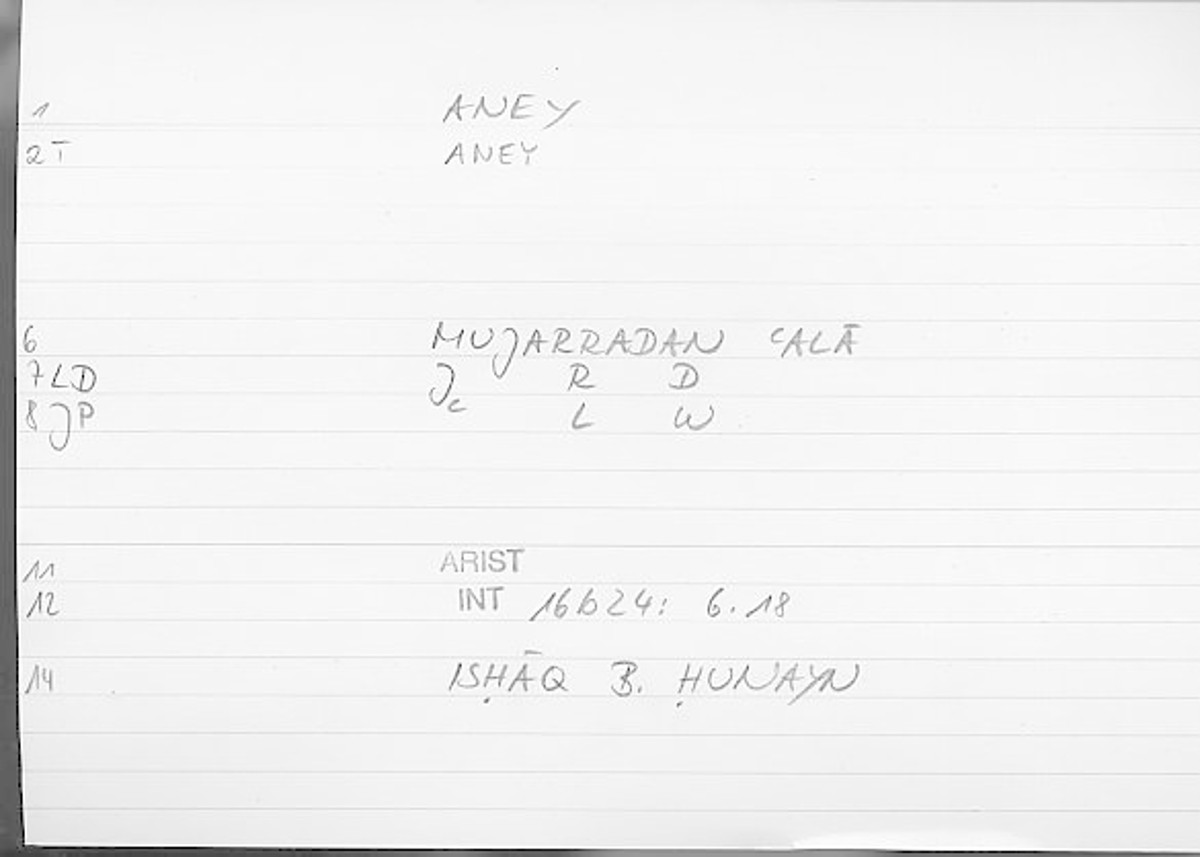 1 ANEY
2T ANEY
6 MUJARRADAN ʿALĀ
7LD Jc R D
8JP L W
11 ARIST
12 INT 16b24: 6.18
14 ISḤĀQ B. ḤUNAYN